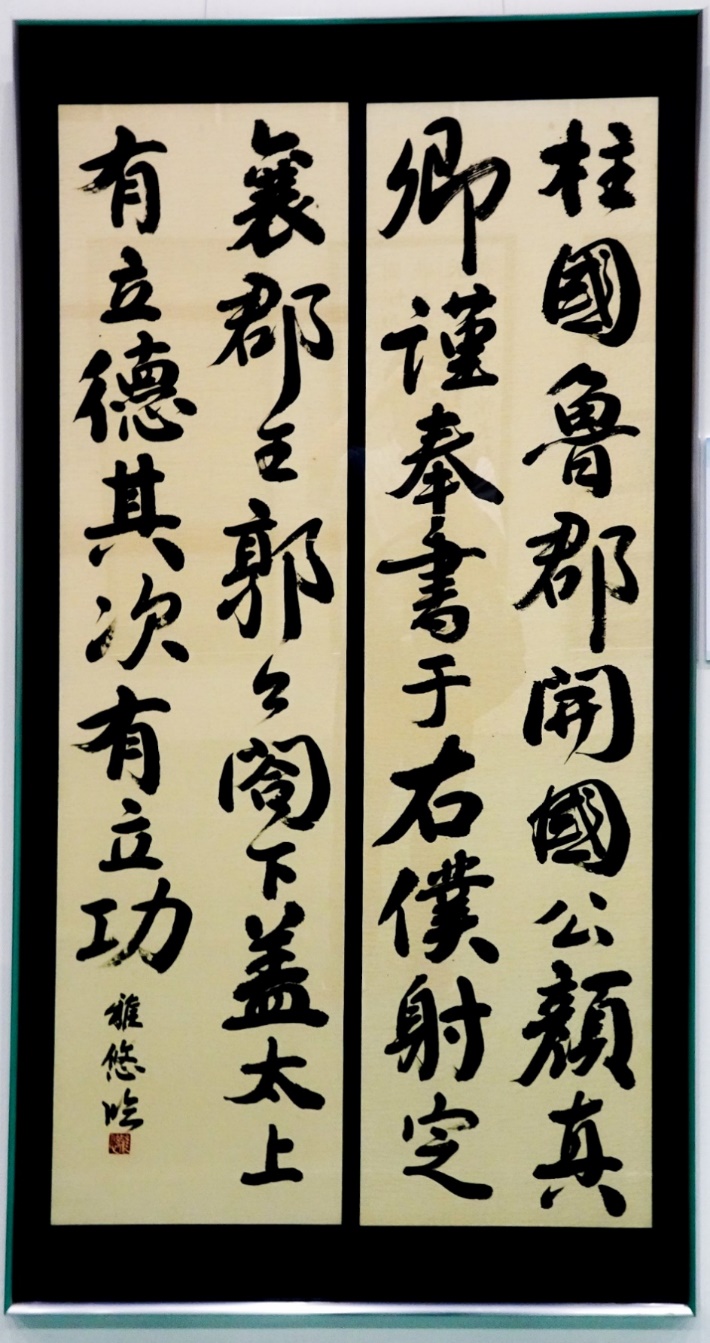 柱國魯郡開國公顏真
卿謹奉書于右僕射定
襄郡王郭公閤下蓋太上
有立德其次有立功
雅悠臨